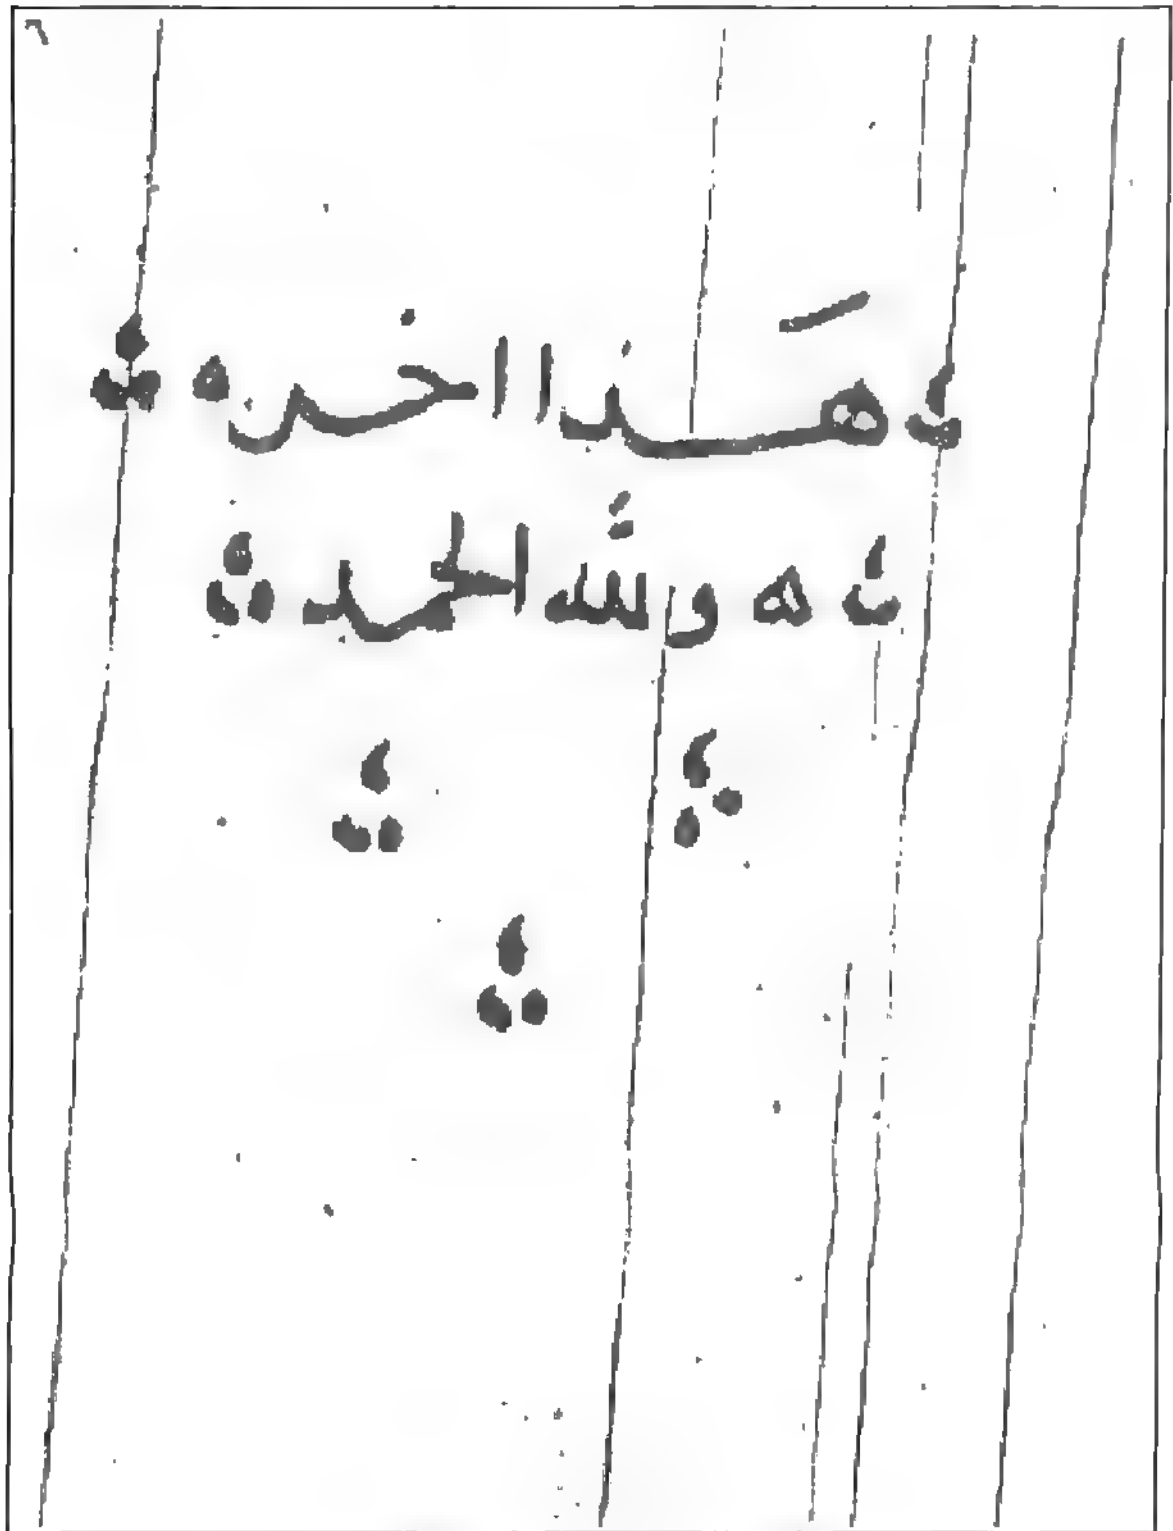 وهذا اخره
ه ولله الحمد